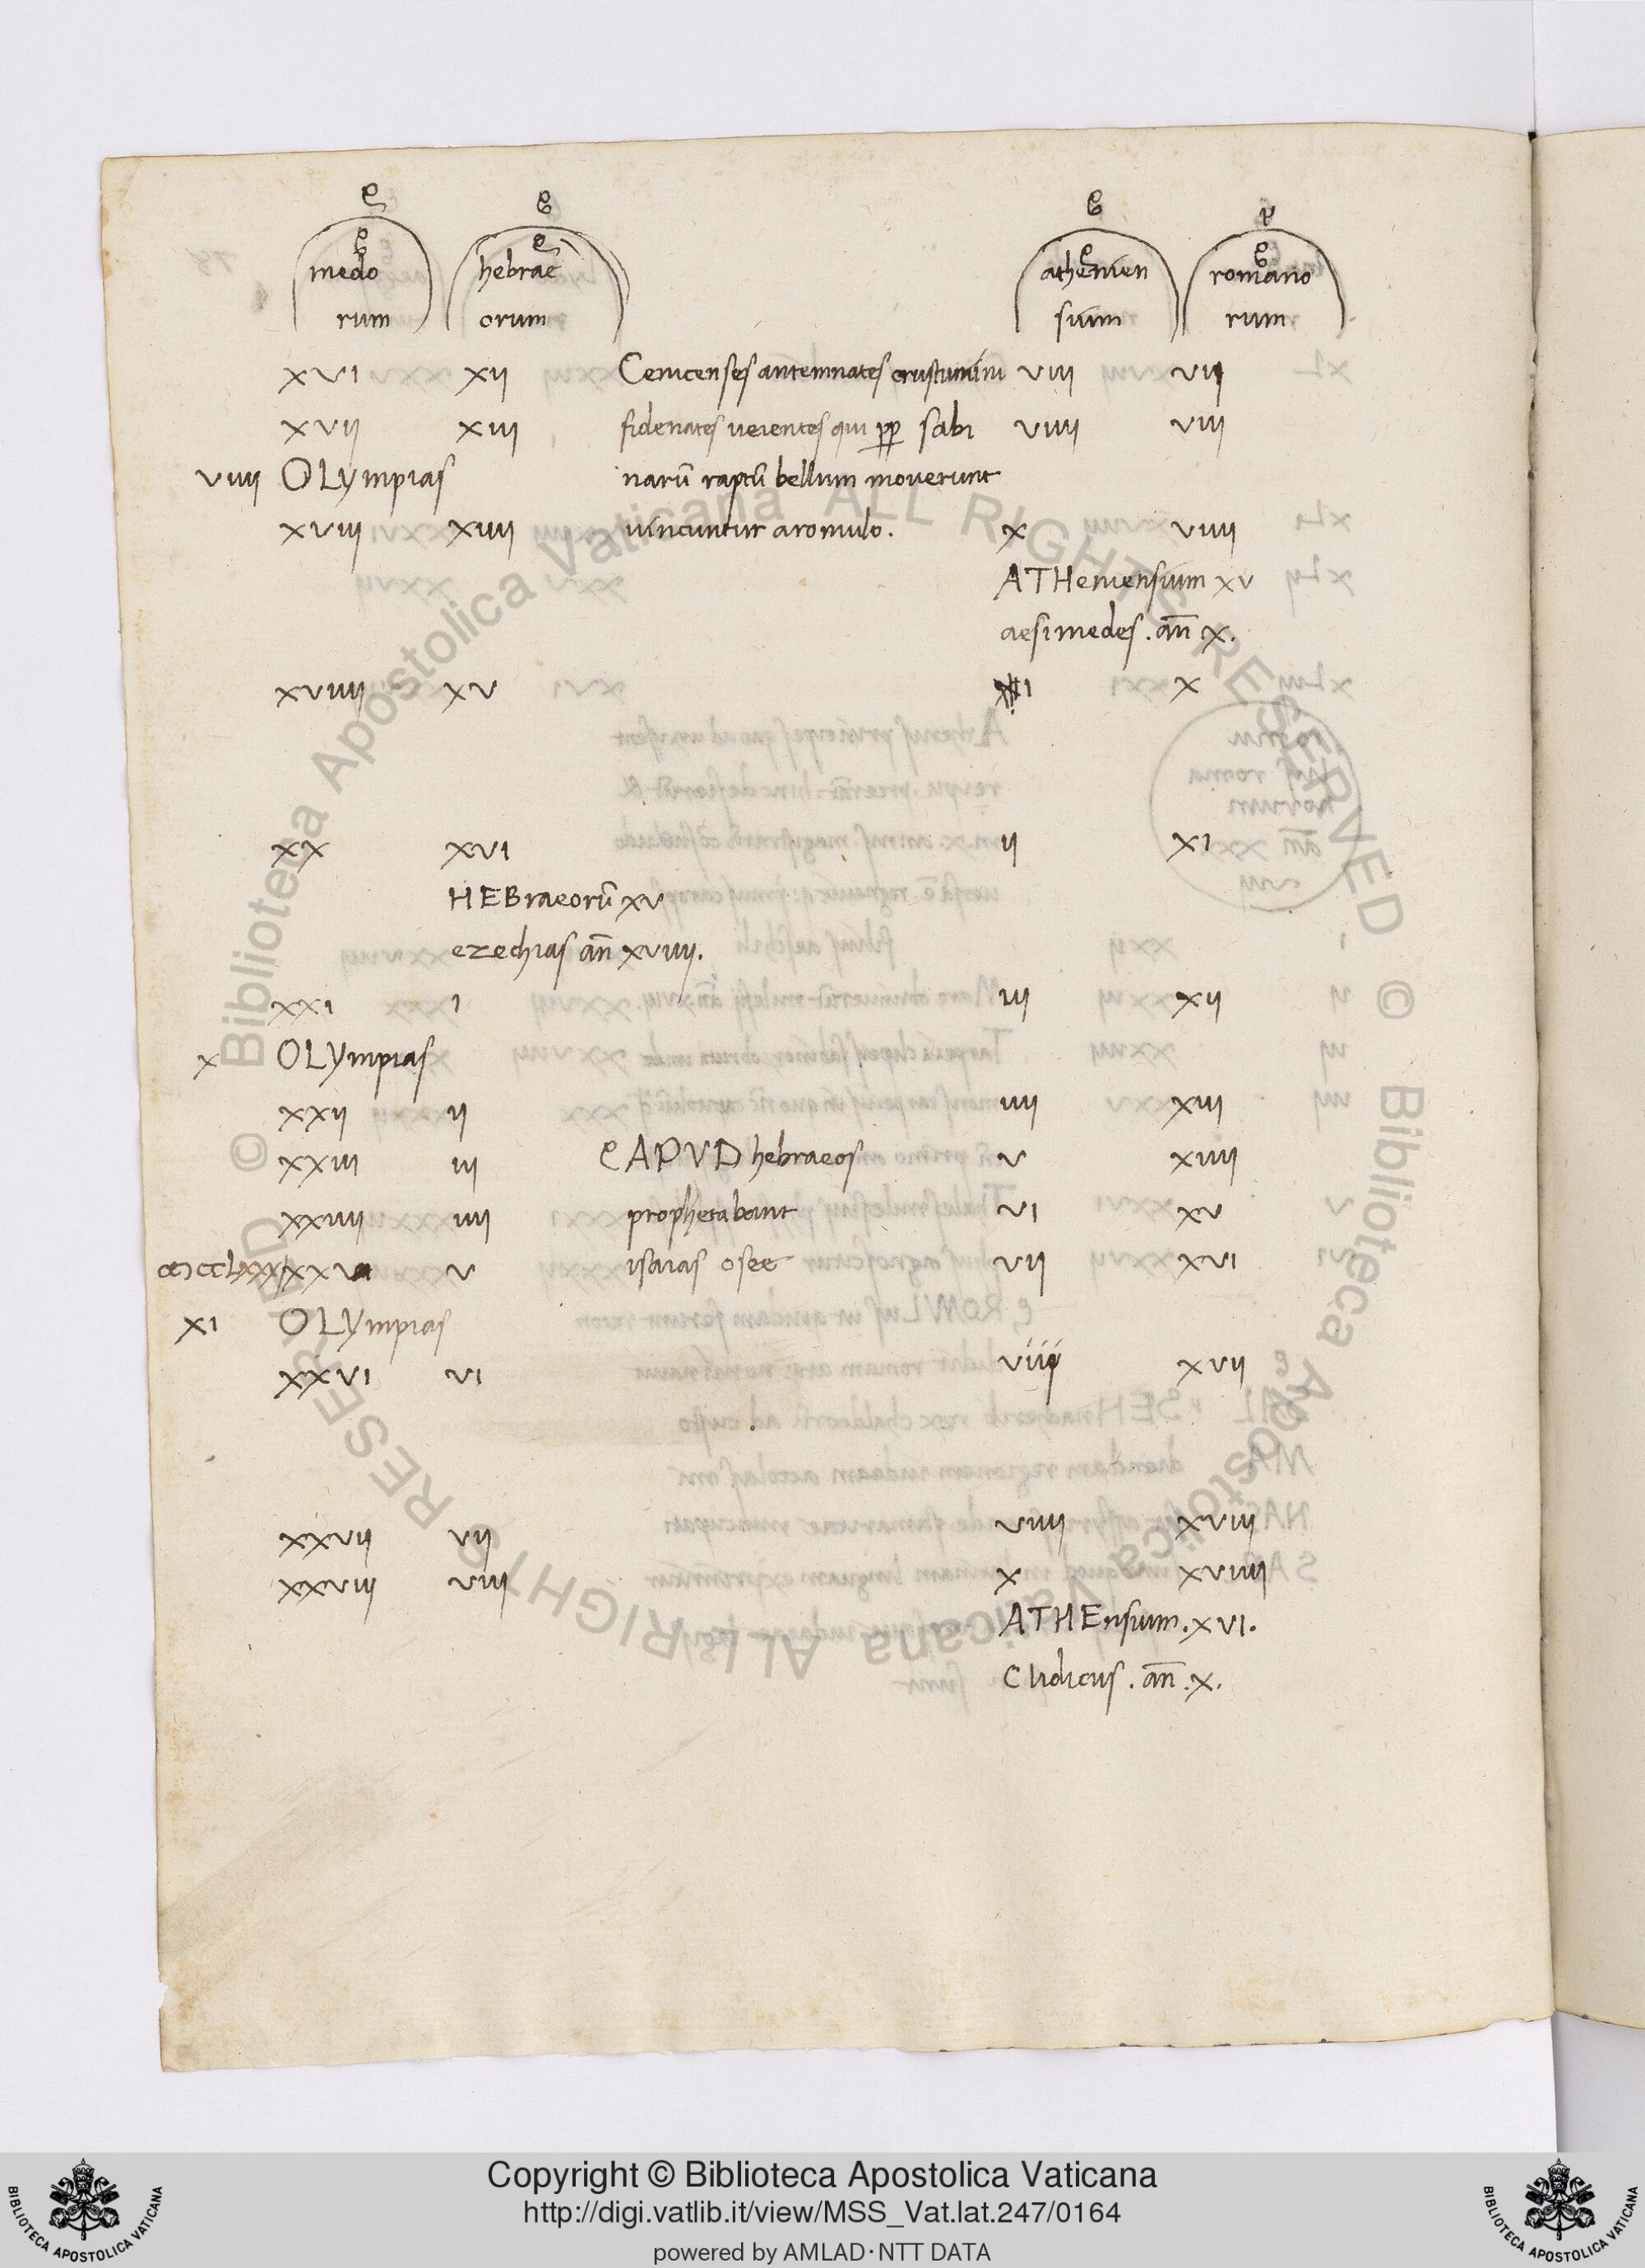 medo hebrae athenien romano
rum orum sium rum
xvi xii Cenicenses antemnates crustumini viii vii
xvii xiii fidenates veientes qui pp sabi viiii viii
viiii OLympias narū raptū bellum moverunt
xviii xiiii vincuntur aromulo. x viiii
ATHeniensium xv
aesimedes . añ x.
xviiii xv i x
xx xvi ii xi
HEBraeorū xv
ezechias añ xviiii.
xxi i iii xii
x OLympias
xxii ii iiii xiii
xxiii iii APVD hebraeos v xiiii
xxiiii iiii prophetabant vi xv
xxv v isaias osee vii xvi
xi OLympias
xxvi vi viii xvii
xxvii vii viiii xviii
xxviii viii x xviiii
ATHEnsium.xvi.
Clidicus . añ .x.
© Biblioteca Apostolica Vaticana ALL RIGHTS RESERVED © Biblioteca Apostolica Vaticana ALL RIGHTS RESERVED
Copyright © Biblioteca Apostolica Vaticana
http://digi.vatlib.it/view/MSS_Vat.lat.247/0164
powered by AMLAD·NTT DATA
BIBLIOTECA APOSTOLICA VATICANA
BIBLIOTECA APOSTOLICA VATICANA